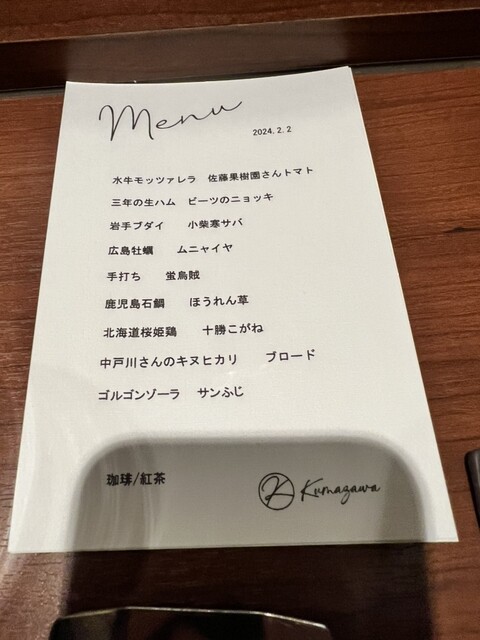 Menu
2024.2.2
水牛モッツァレラ　佐藤果樹園さんトマト
三年の生ハム　ビーツのニョッキ
岩手ブダイ　　小柴寒サバ
広島牡蠣　　ムニャイヤ
手打ち　　蛍烏賊
鹿児島石鯛　　ほうれん草
北海道桜姫鶏　　十勝こがね
中戸川さんのキヌヒカリ　　ブロード
ゴルゴンゾーラ　サンふじ
珈琲/紅茶
Kumagawa